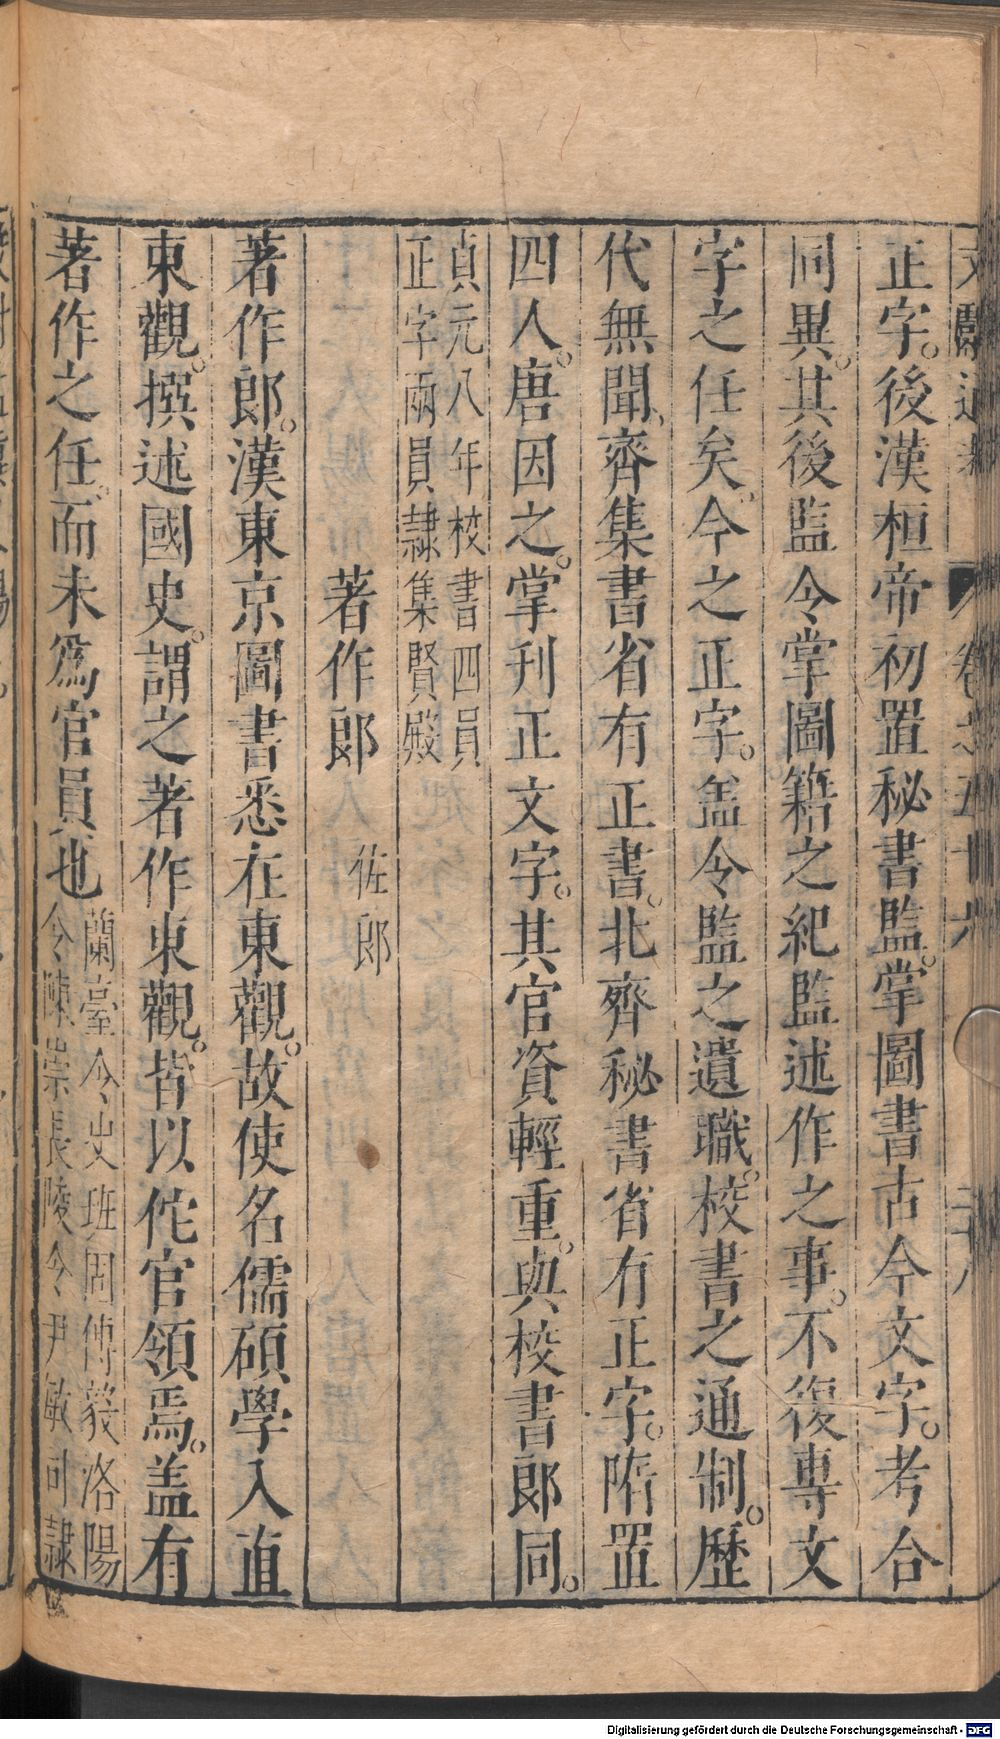 文獻通考 卷之五十六 二十八
正字。後漢桓帝初置秘書監。掌圖書古今文字。考合
同異。其後監令掌圖籍之紀監述作之事。不復專文
字之任矣。今之正字。盖令監之遺職。校書之通制。歷
代無聞、齊集書省有正書。北齊秘書省有正字。隋置
四人。唐因之。掌刋正文字。其官資輕重。與校書郎同。
貞元八年校書四員
正字兩員隷集賢殿
著作郎 佐郎
著作郎。漢東京圖書悉在東觀。故使名儒碩學入直
東觀。撰述國史。謂之著作東觀。皆以佗官領焉。盖有
著作之任。而未爲官員也
蘭臺令史班固傅毅洛陽
令陳崇長陵令尹敏司隷
Digitalisierung gefördert durch die Deutsche Forschungsgemeinschaft - DFG